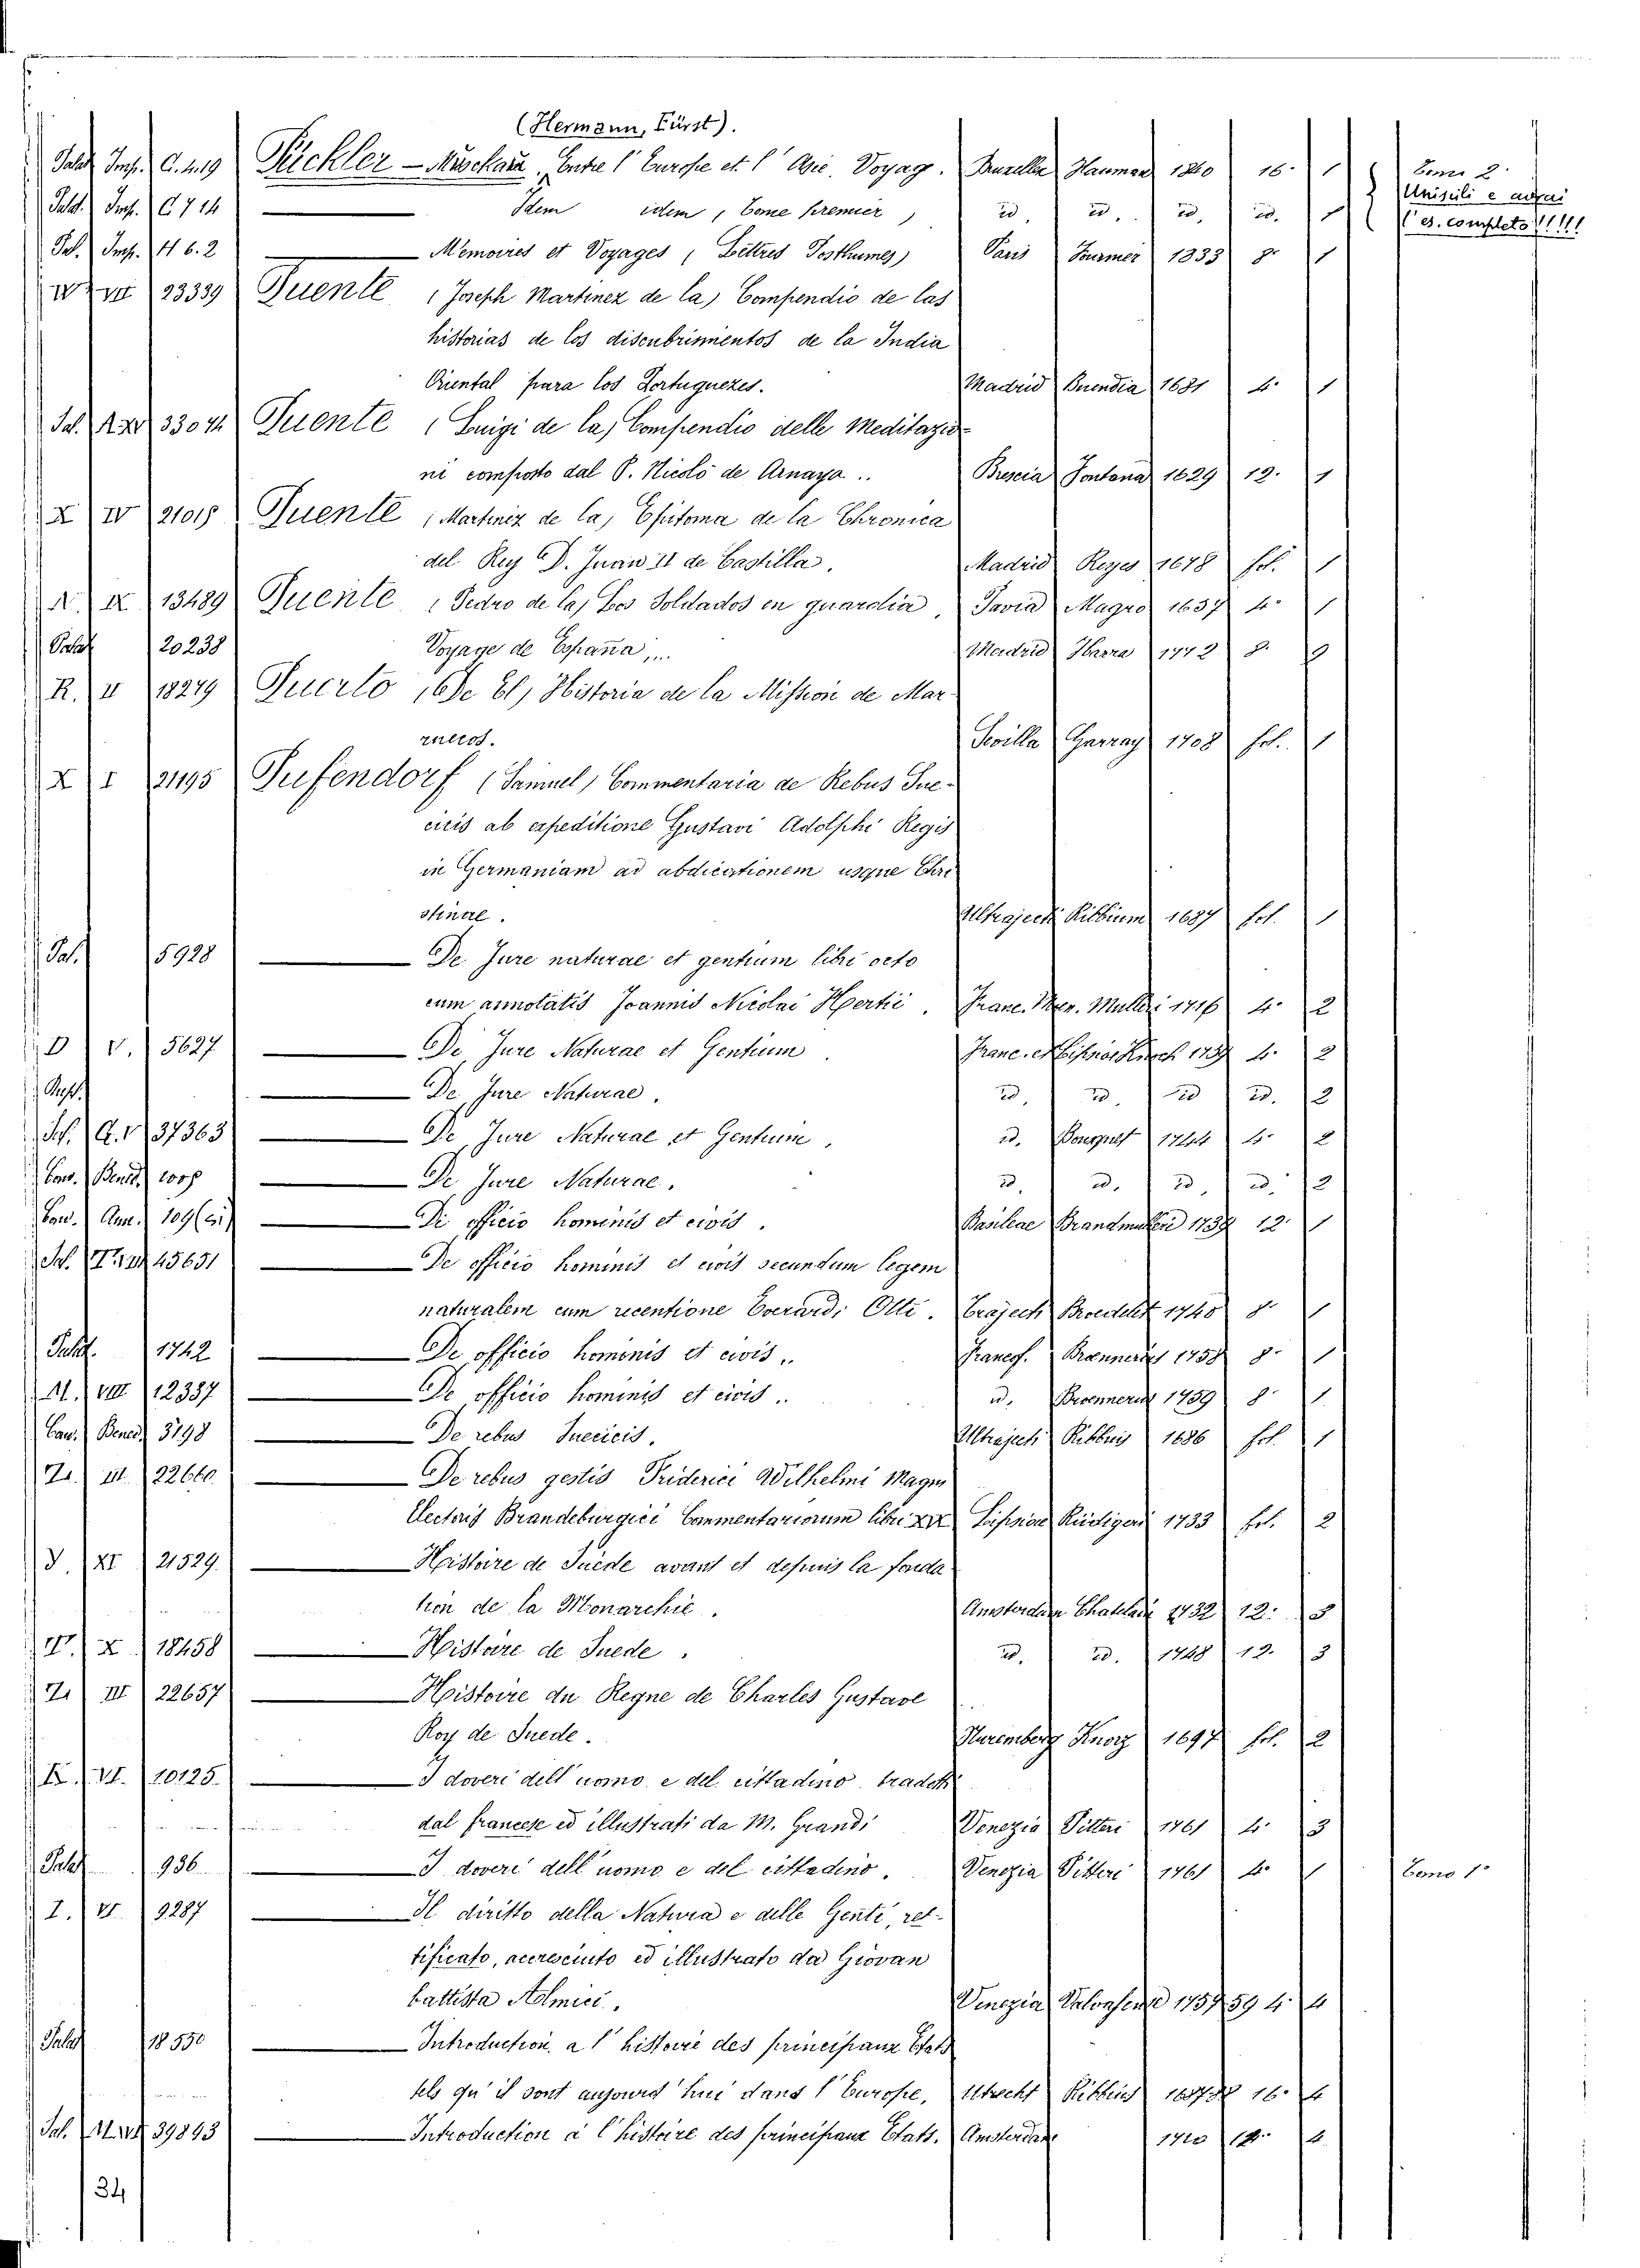 (Hermann, Fürst).
Palat Imp. C. 4.19 Pückler - Muschau, Entre l'Europe et l'Asie. Voyag. Bruxelles Hauman 1840 16. 1 Tomi 2.
Uniscili e avrai
Palat. Imp. C 7 14 Idem idem, Tome premier, id. id. id. id. 1 1 es. completo!!!!!
Pal. Imp. H 6. 2 Memoires et Voyages (Lettres Posthumes) Paris Fournier 1833 8° 1
VII 23339 Puente (Joseph Martinez de la) Compendio de las
historias de los discubrimientos de la India
Oriental para los Portuguezes. Madrid Buendia 1681 4. 1
Sal. 33074 Puente (Luigi de la) Compendio delle Meditazio-
ni composto dal P. Nicolò de Arnaya .. Brescia Fontana 1629 12. 1
X IV 21018 Puente (Martinez de la) Epitoma de la Chronica
del Rey D. Juan II de Castilla. Madrid Reyes 1678 fol. 1
N. IX 13489 Puente (Pedro de la) Los Soldados en guardia, Pavia Magro 1657 4° 1
Palat 20238 Voyage de España,... Madrid Ibarra 1772 8. 9
R. II 18279 Puerto (De El) Historia de la Mission de Mar-
ruecos. Sevilla Garray 1708 fol. 1
X I 21195 Pufendorf (Samuel) Commentaria de Rebus Sue-
cicis ab expeditione Gustavi Adolphi Regis
in Germaniam ad abdicationem usque Chri
stinae. Ultrajecti Ribbium 1687 fol. 1
Pal. 5928 De Jure naturae et gentium libri octo
cum annotatis Joannis Nicolai Hertii. Franc. Mullen 1716 4° 2
D V. 5627 De Jure Naturae et Gentium. Franc. 4. 2
De Jure Naturae. id. id. id id. 2
37363 De Jure Naturae et Gentium. id. Bousquet 1744 4. 2
Con. Bened. De Jure Naturae. id. id. id. id. 2
Con. Ann. 109 De officio hominis et civis. Basileae Brandmulleri 1739 12. 1
45631 De officio hominis et civis secundum legem
naturalem cum recentione Everardi Otti. Trajecti Broedelet 1740 8. 1
Palat. 1742 De officio hominis et civis .. Francf. Broenneri 1758 8. 1
M. VIII 12387 De officio hominis et civis .. id. Broenneri 1759 8 1
Con. Bened. 3798 De rebus Suecicis. Ultrajecti Ribbius 1686 fol. 1
III. 22660 De rebus gestis Friderici Wilhelmi Magni
Electoris Brandeburgici Commentariorum libri XIX Lipsiae Rüdigeri 1733 fol. 2
XI 21529. Histoire de Suède avant et depuis la fonda
tion de la Monarchie. Amsterdam Chatelain 1732 12: 3
X 18458 Histoire de Suede. id. id. 1748 12. 3
III 22657 Histoire du Regne de Charles Gustave
Roy de Suede. Nuremberg Knorz 1697 fol. 2
K. VI. 10125. I doveri dell'uomo e del cittadino tradotti
dal francese ed illustrati da M. Grandi Venezia Pitteri 1761 4. 3
Palat 936 I doveri dell'uomo e del cittadino. Venezia Pitteri 1761 4° 1 Tomo 1°
I. VI. 9287 Il diritto della Natura e delle Genti, ret-
tificato, accresciuto ed illustrato da Giovan
battista Almici. Venezia Valvasense 1757 59 4. 4
Palat 18550 Introduction a l'histoire des principaux Etats
tels qu'il sont aujourd'hui dans l'Europe, Utrecht Ribbius 16. 4
39893 Introduction à l'histoire des principaux Etats. Amsterdam 1710 12. 4
34